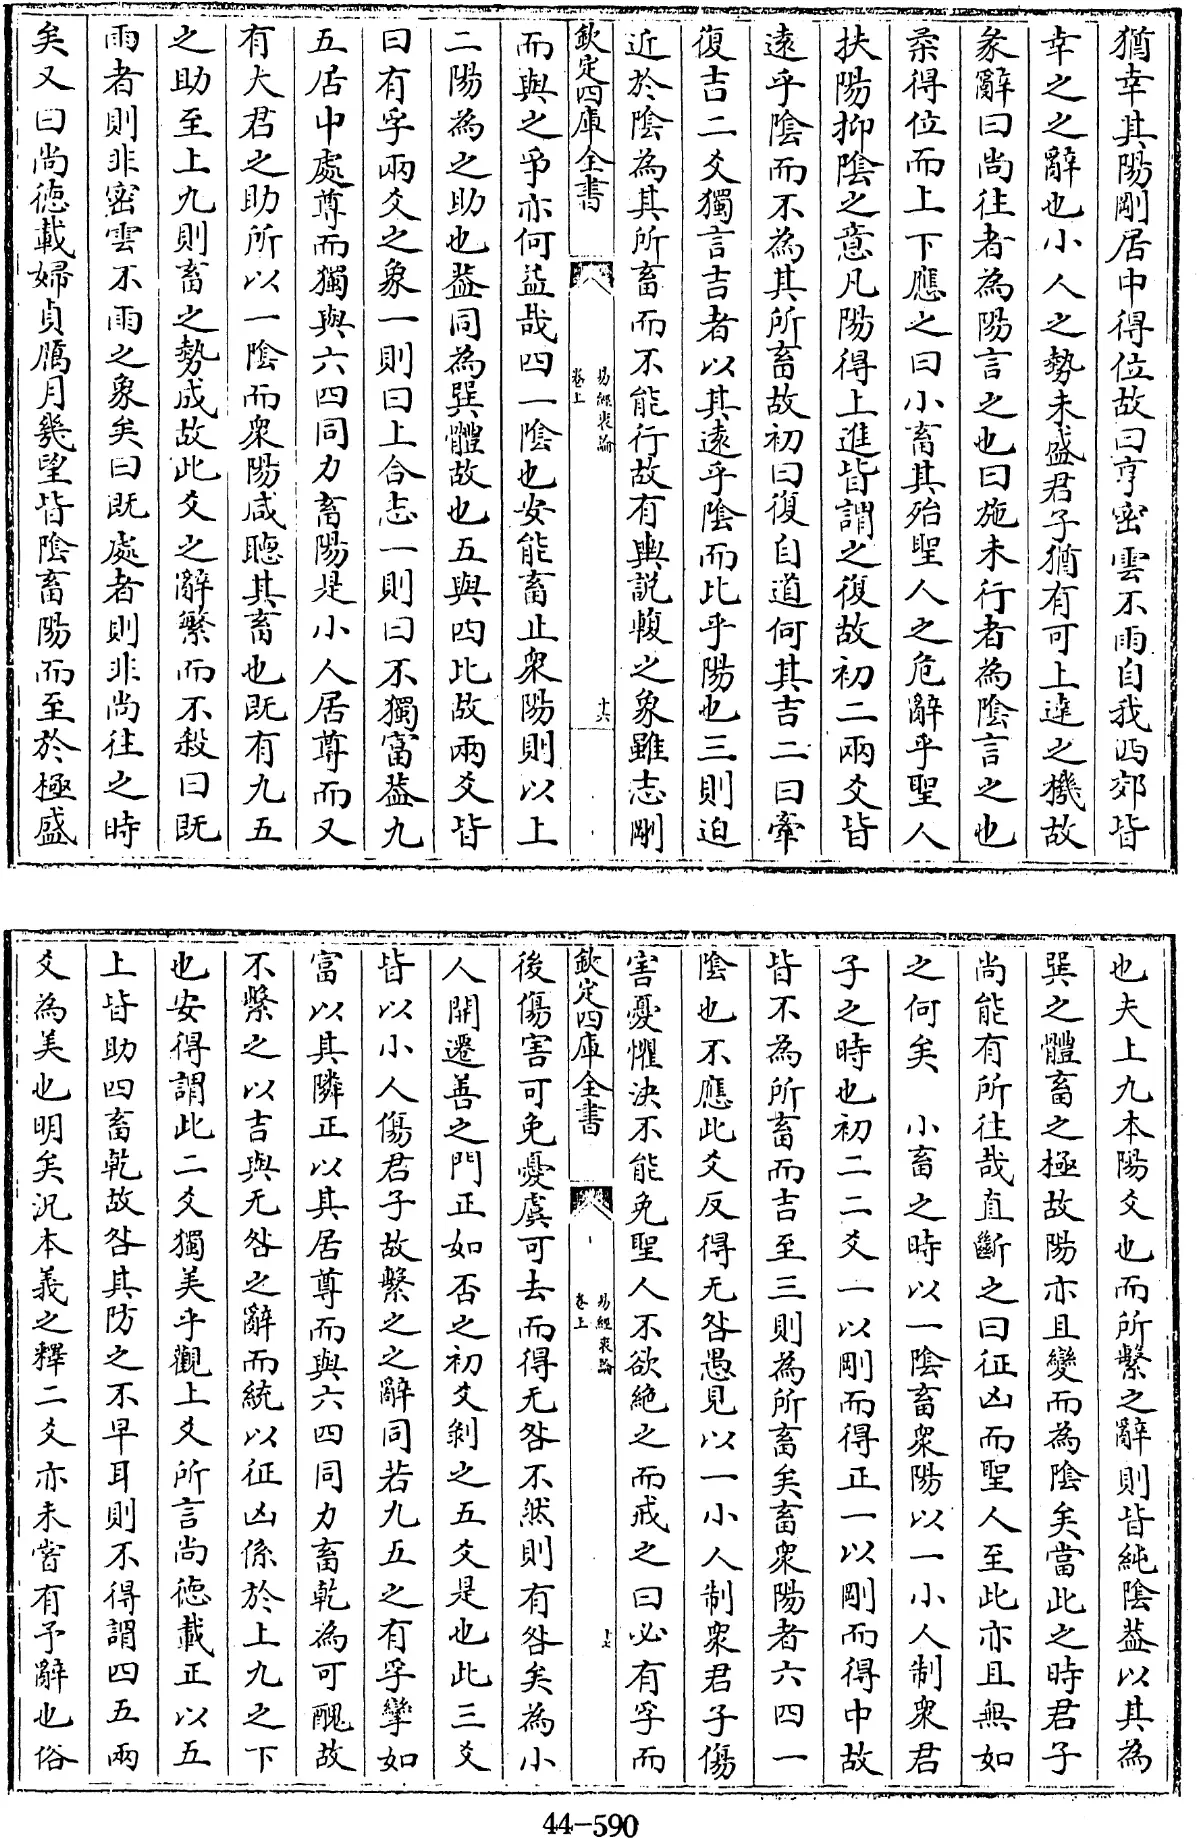 猶幸其陽剛居中得位故曰亨密雲不雨自我西郊皆
幸之之辭也小人之勢未盛君子猶有可上達之機故
彖辭曰尚往者為陽言之也曰施未行者為陰言之也
柔得位而上下應之曰小畜其殆聖人之危辭乎聖人
扶陽抑陰之意凡陽得上進皆謂之復故初二兩爻皆
遠乎陰而不為其所畜故初曰復自道何其吉二曰牽
復吉二爻獨言吉者以其遠乎陰而比乎陽也三則迫
近於陰為其所畜而不能行故有輿説輹之象雖志剛
欽定四庫全書
易經衷論
卷上
十六
而與之爭亦何益哉四一陰也安能畜止衆陽則以上
二陽為之助也葢同為巽體故也五與四比故兩爻皆
曰有孚兩爻之象一則曰上合志一則曰不獨富葢九
五居中處尊而獨與六四同力畜陽是小人居尊而又
有大君之助所以一陰而衆陽咸聽其畜也既有九五
之助至上九則畜之勢成故此爻之辭繁而不殺曰既
雨者則非密雲不雨之象矣曰既處者則非尚往之時
矣又曰尚徳載婦貞厲月幾望皆陰畜陽而至於極盛
也夫上九本陽爻也而所繫之辭則皆純陰葢以其為
巽之體畜之極故陽亦且變而為陰矣當此之時君子
尚能有所往哉直斷之曰征凶而聖人至此亦且無如
之何矣　小畜之時以一陰畜衆陽以一小人制衆君
子之時也初二二爻一以剛而得正一以剛而得中故
皆不為所畜而吉至三則為所畜矣畜衆陽者六四一
陰也不應此爻反得无咎愚見以一小人制衆君子傷
害憂懼決不能免聖人不欲絶之而戒之曰必有孚而
欽定四庫全書
易經衷論
卷上
十七
後傷害可免憂虞可去而得无咎不然則有咎矣為小
人開遷善之門正如否之初爻剝之五爻是也此三爻
皆以小人傷君子故繫之之辭同若九五之有孚攣如
富以其隣正以其居尊而與六四同力畜乾為可醜故
不繫之以吉與无咎之辭而統以征凶係於上九之下
也安得謂此二爻獨美乎觀上爻所言尚徳載正以五
上皆助四畜乾故咎其防之不早耳則不得謂四五兩
爻為美也明矣況本義之釋二爻亦未嘗有予辭也俗
44-590